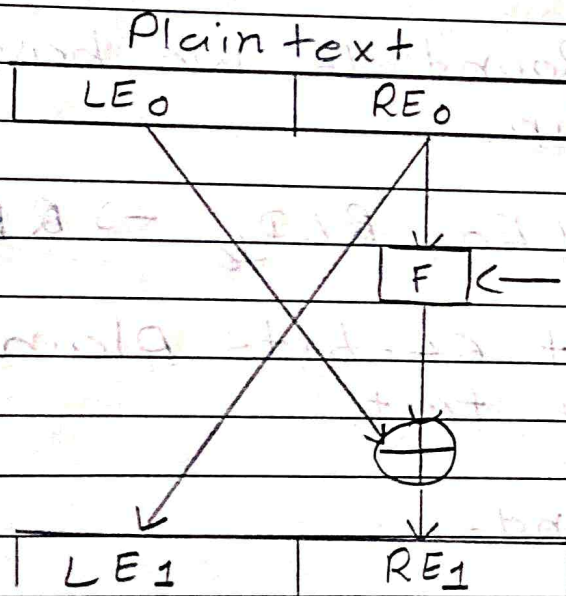 Plain text
LE0 RE0
F
LE1 RE1